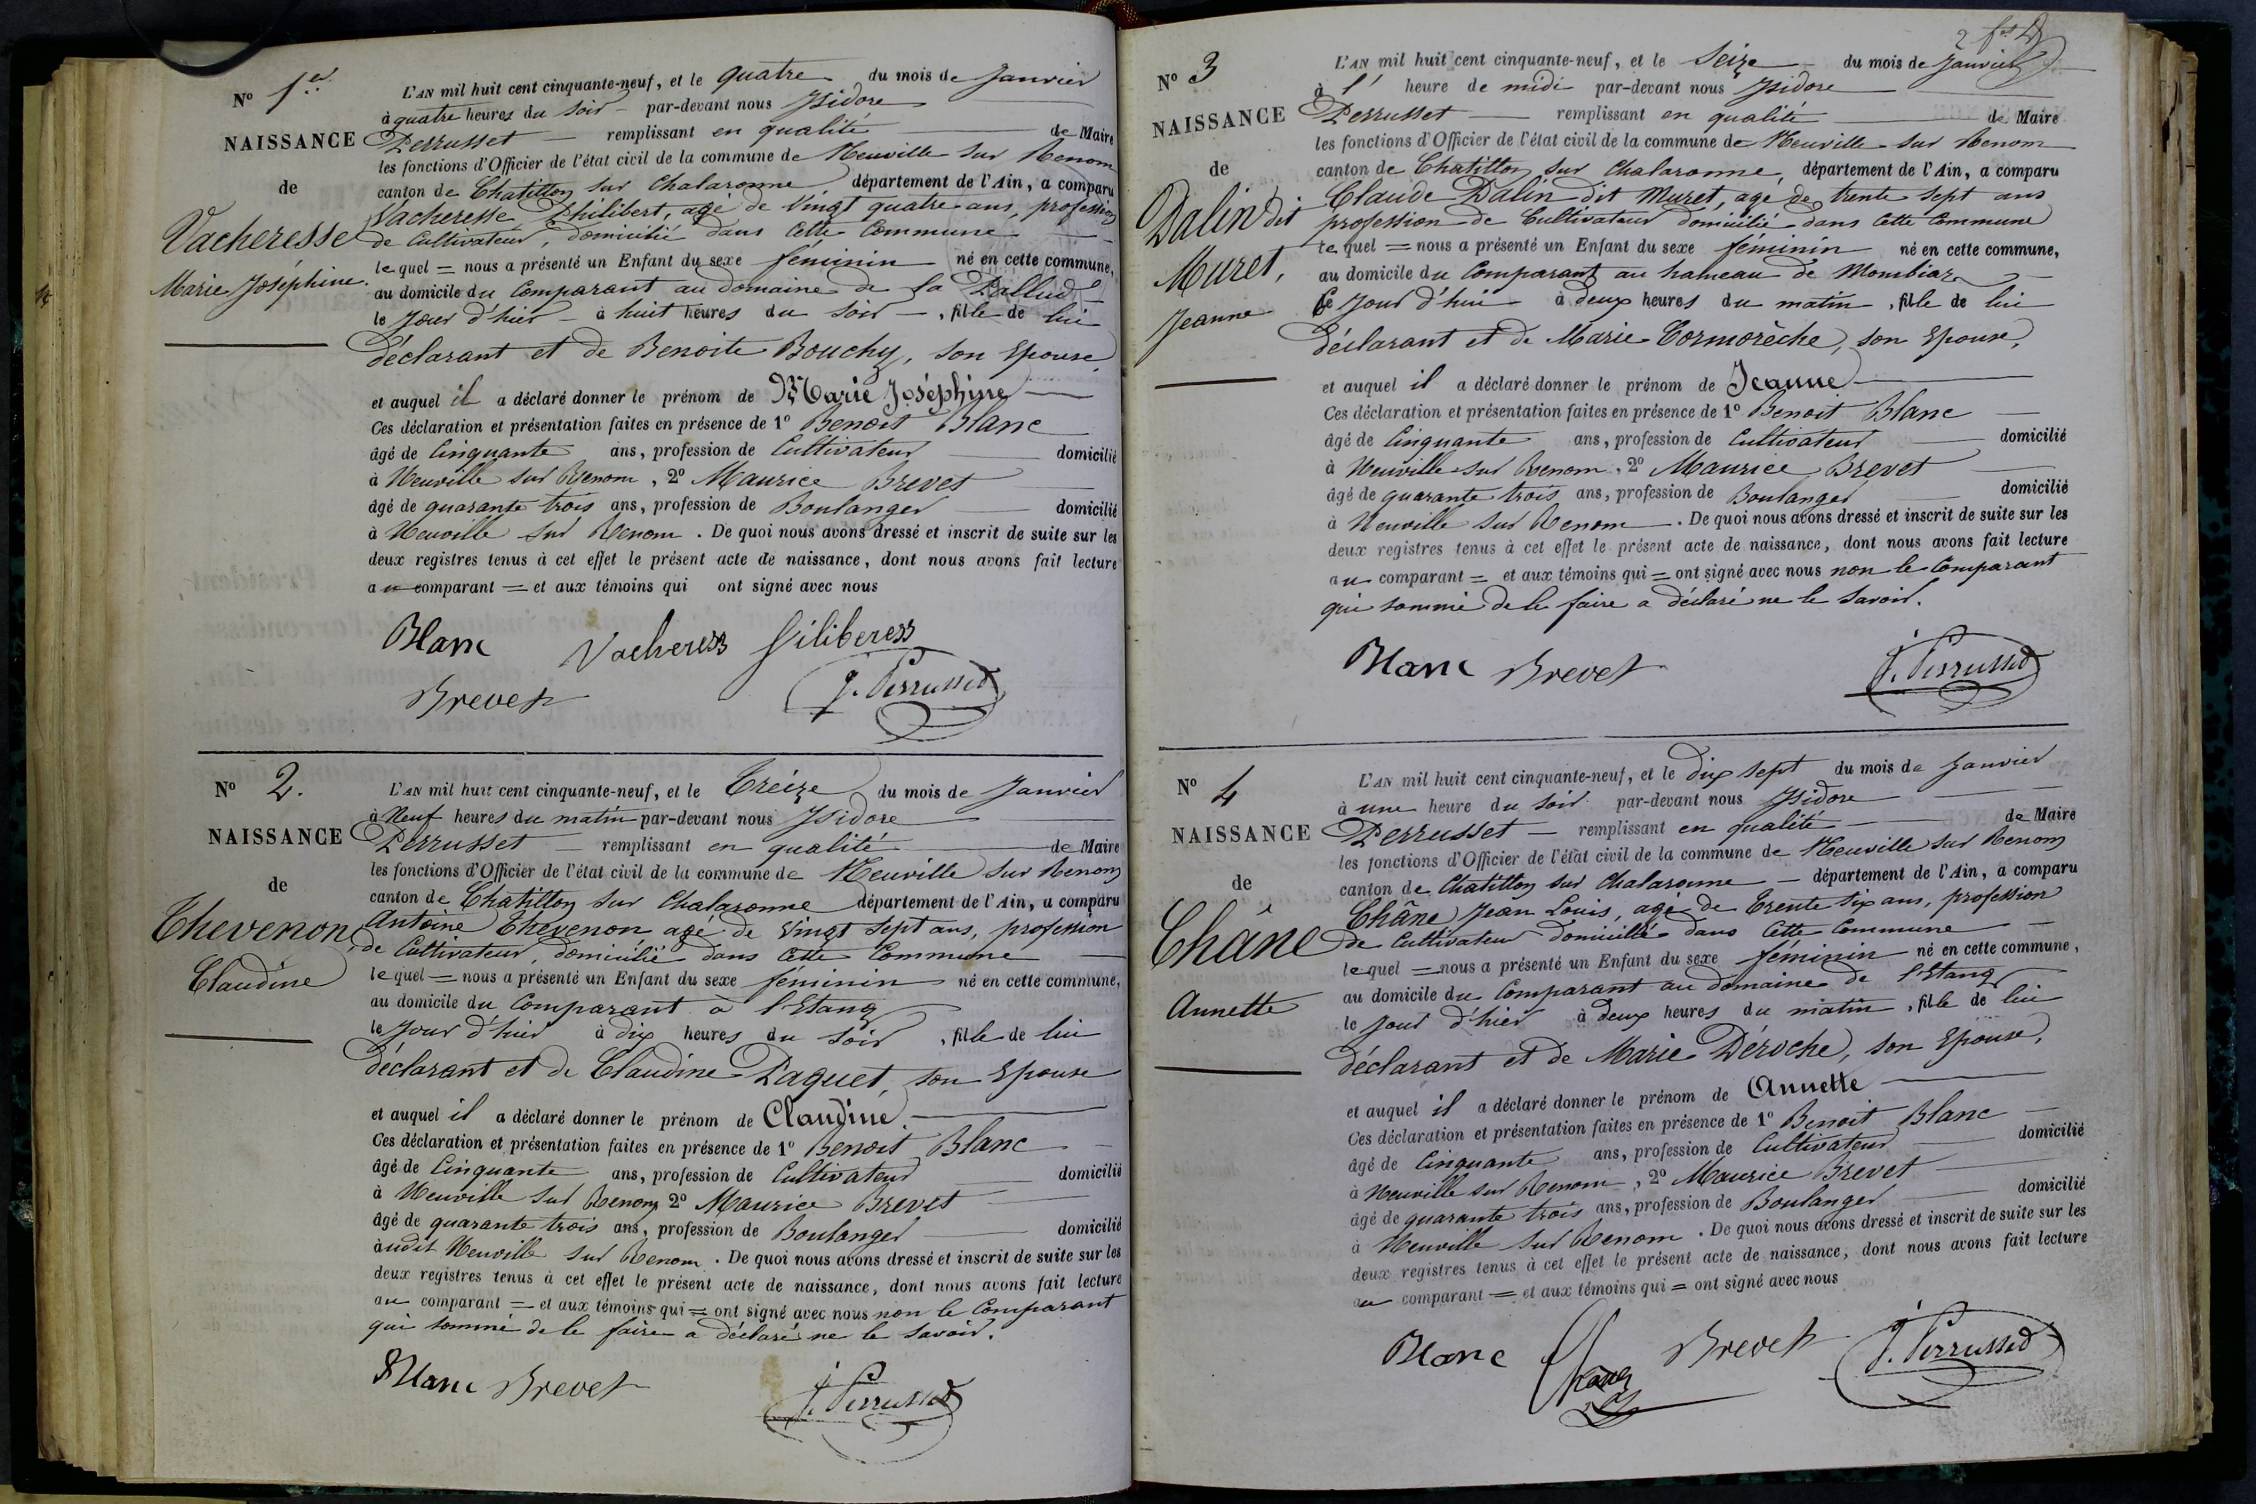 No 1er
NAISSANCE
de
Vacheresse
Marie Joséphine.
L'AN mil huit cent cinquante-neuf, et le quatre du mois de Janvier
à quatre heures du soir par-devant nous Isidore
Perrusset remplissant en qualité de Maire
les fonctions d'Officier de l'état civil de la commune de Neuville sur Renom
canton de Chatillon sur Chalaronne, département de l'Ain, a comparu
Vacheresse Philibert, agé de vingt quatre ans, profession
de Cultivateur, domicilié dans cette Commune
lequel = nous a présenté un Enfant du sexe féminin né en cette commune,
au domicile du Comparant au domaine de la
le jour d'hier à huit heures du soir, fille de lui
déclarant et de Benoite Bouchy, son Epouse,
et auquel il a déclaré donner le prénom de Marie Joséphine
Ces déclaration et présentation faites en présence de 1o Benoit Blanc
âgé de Cinquante ans, profession de Cultivateur domicilié
à Neuville sur Renom, 2o Maurice Brevet
âgé de quarante trois ans, profession de Boulanger domicilié
à Neuville sur Renom. De quoi nous avons dressé et inscrit de suite sur les
deux registres tenus à cet effet le présent acte de naissance, dont nous avons fait lecture
au comparant = et aux témoins qui ont signé avec nous
Blanc Vacheress Filiberess
Brevet J. Perrusset
No 2.
NAISSANCE
de
Thevenon
Claudine
L'AN mil huit cent cinquante-neuf, et le Treize du mois de Janvier
à Neuf heures du matin par-devant nous Isidore
Perrusset remplissant en qualité de Maire
les fonctions d'Officier de l'état civil de la commune de Neuville sur Renom
canton de Chatillon sur Chalaronne département de l'Ain, a comparu
Antoine Thevenon agé de vingt sept ans, profession
de Cultivateur, domicilié dans cette Commune
lequel = nous a présenté un Enfant du sexe féminin né en cette commune,
au domicile du Comparant à l'Etang
le jour d'hier à dix heures du soir, fille de lui
déclarant et de Claudine Paquet, son Epouse
et auquel il a déclaré donner le prénom de Claudine.
Ces déclaration et présentation faites en présence de 1o Benoit Blanc
âgé de Cinquante ans, profession de Cultivateur domicilié
à Neuville sur Renom 2o Maurice Brevet
âgé de quarante trois ans, profession de Boulanger domicilié
audit Neuville sur Renom. De quoi nous avons dressé et inscrit de suite sur les
deux registres tenus à cet effet le présent acte de naissance, dont nous avons fait lecture
au comparant = et aux témoins qui = ont signé avec nous non le Comparant
qui sommé de le faire a déclaré ne le savoir.
Blanc Brevet J. Perrusset
No 3
NAISSANCE
de
Dalin dit
Muret,
Jeanne
L'AN mil huit cent cinquante-neuf, et le Seize du mois de Janvier
à 1' heure de midi par-devant nous Isidore
Perrusset remplissant en qualité de Maire
les fonctions d'Officier de l'état civil de la commune de Neuville sur Renom
canton de Chatillon sur Chalaronne, département de l'Ain, a comparu
Claude Dalin dit Muret, agé de trente sept ans
profession de Cultivateur domicilié dans cette Commune
lequel = nous a présenté un Enfant du sexe féminin né en cette commune,
au domicile du Comparant au hameau de Mombiar
le jour d'hui à deux heures du matin, fille de lui
déclarant et de Marie Cormorèche, son Epouse,
et auquel il a déclaré donner le prénom de Jeanne
Ces déclaration et présentation faites en présence de 1o Benoit Blanc
âgé de Cinquante ans, profession de Cultivateur domicilié
à Neuville sur Renom, 2o Maurice Brevet
âgé de quarante trois ans, profession de Boulanger domicilié
à Neuville sur Renom. De quoi nous avons dressé et inscrit de suite sur les
deux registres tenus à cet effet le présent acte de naissance, dont nous avons fait lecture
au comparant = et aux témoins qui = ont signé avec nous non le Comparant
qui sommé de le faire a déclaré ne le savoir.
Blanc Brevet J. Perrusset
No 4
NAISSANCE
de
Châne
Annette
L'AN mil huit cent cinquante-neuf, et le dix sept du mois de Janvier
à une heure du soir par-devant nous Isidore
Perrusset remplissant en qualité de Maire
les fonctions d'Officier de l'état civil de la commune de Neuville sur Renom
canton de Chatillon sur Chalaronne département de l'Ain, a comparu
Châne Jean Louis, agé de Trente six ans, profession
de Cultivateur domicilié dans cette Commune
lequel = nous a présenté un Enfant du sexe féminin né en cette commune,
au domicile du Comparant au domaine de l'Etang
le jour d'hier à deux heures du matin, fille de lui
déclarant et de Marie Déroche, son Epouse,
et auquel il a déclaré donner le prénom de Annette
Ces déclaration et présentation faites en présence de 1o Benoit Blanc
âgé de Cinquante ans, profession de Cultivateur domicilié
à Neuville sur Renom, 2o Maurice Brevet
âgé de quarante trois ans, profession de Boulanger domicilié
à Neuville sur Renom. De quoi nous avons dressé et inscrit de suite sur les
deux registres tenus à cet effet le présent acte de naissance, dont nous avons fait lecture
au comparant = et aux témoins qui = ont signé avec nous
Blanc Brevet J. Perrusset